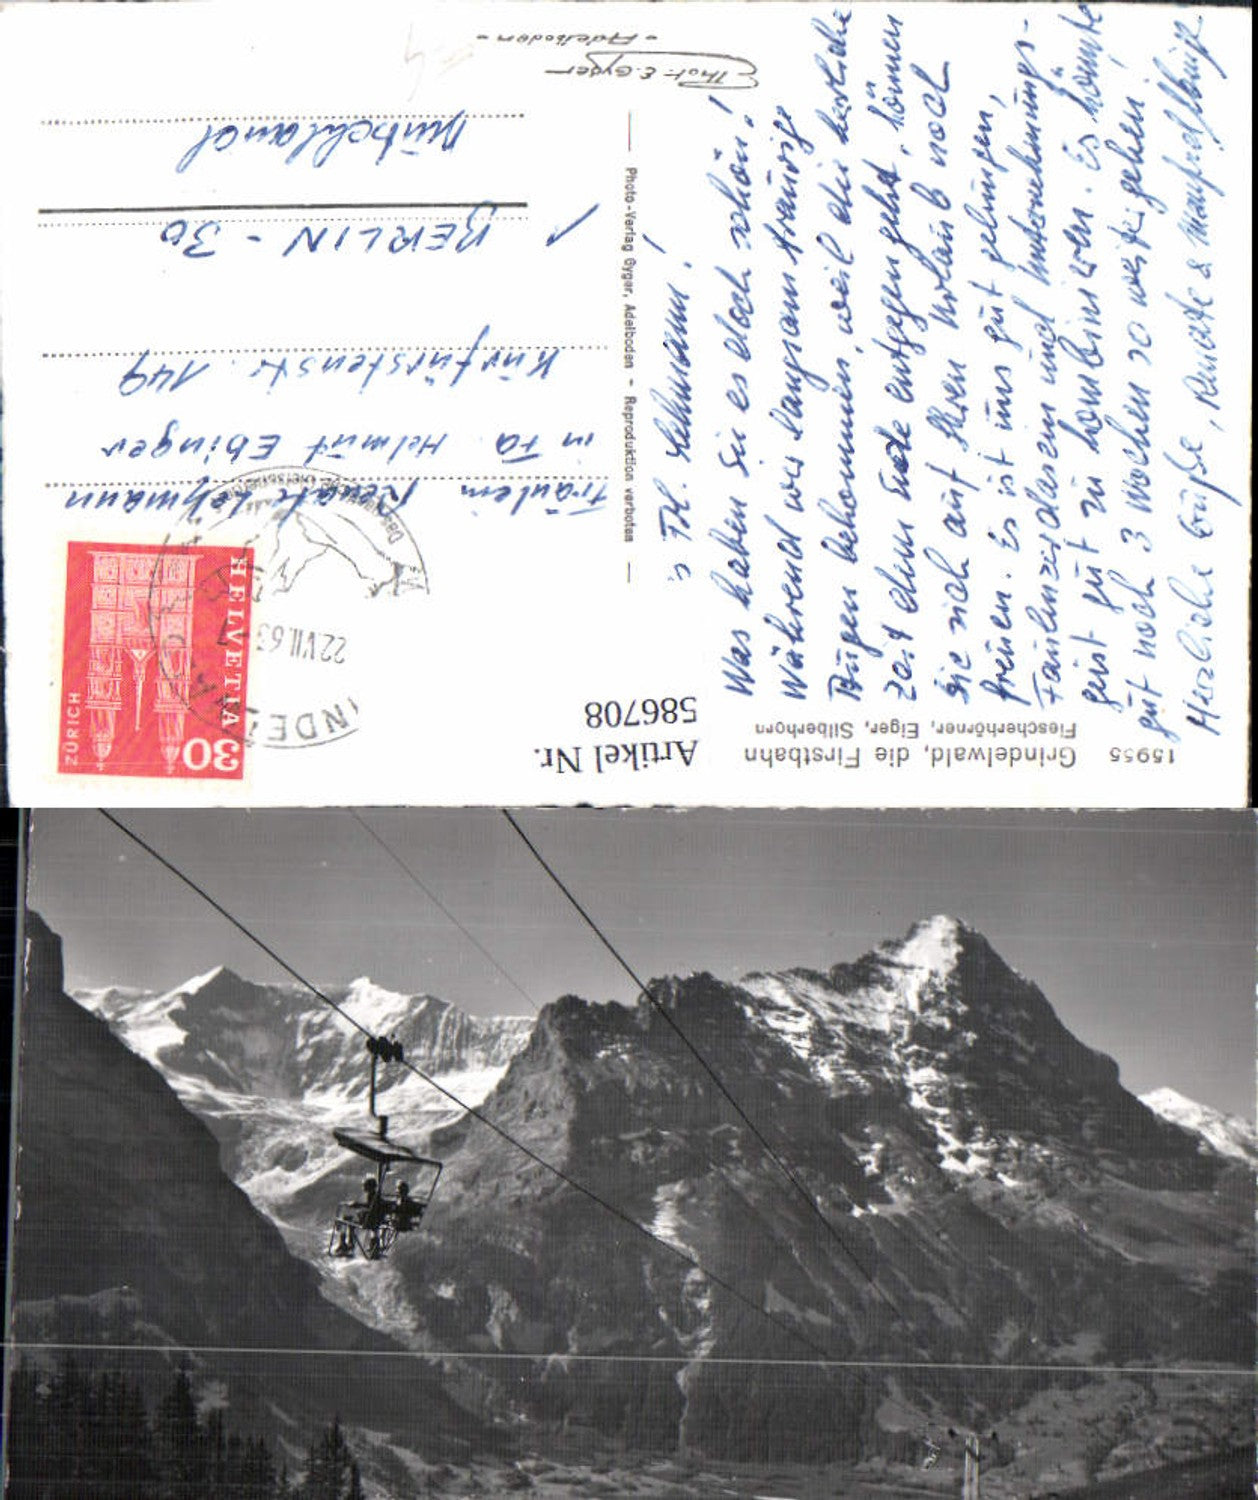 15955 Grindelwald, die Firstbahn
Fiescherhörner, Eiger, Silberhorn
Artikel Nr.
586708
Frl. Lehmann!
Was haben Sie es doch schön!
Während wir langsam traurige
Augen bekommen, weil die herrliche
Zeit dem Ende entgegen geht, können
Sie sich auf Ihren Urlaub noch
freuen. Es ist uns gut gelungen,
Faulenzerdasein und Unternehmungs-
geist gut zu kombinieren. Es könnte
gut noch 3 Wochen so weiter gehen.
Herzliche Grüße, Renate & Manfred
Photo-Verlag Gyger, Adelboden - Reproduktion verboten
Phot. E. Gyger
- Adelboden -
HELVETIA
30
ZÜRICH
22.VII.63
Fräulein Renate Lehmann
in Fa. Helmut Ebinger
Kurfürstenstr. 149
1 BERLIN - 30
Deutschland